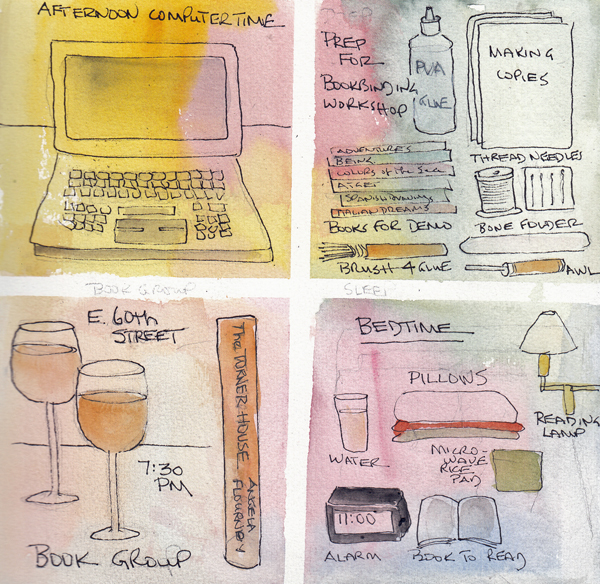 AFTERNOON COMPUTER TIME
PREP
FOR
BOOKBINDING
WORKSHOP
PVA
GLUE
MAKING
COPIES
ADVENTURES
BEING
COLORS of the Sea
ATGET
SPANISH
ITALIAN DREAMS
BOOKS FOR DEMO
THREAD NEEDLES
BONE FOLDER
BRUSH 4 GLUE
AWL
BOOK GROUP
SLEEP
E. 60th
STREET
The TURNER HOUSE ANGELA FLOURNOY
7:30
PM
BOOK GROUP
BEDTIME
PILLOWS
READING
LAMP
WATER
MICRO-
WAVE
RICE
PAD
11:00
ALARM
BOOK TO READ